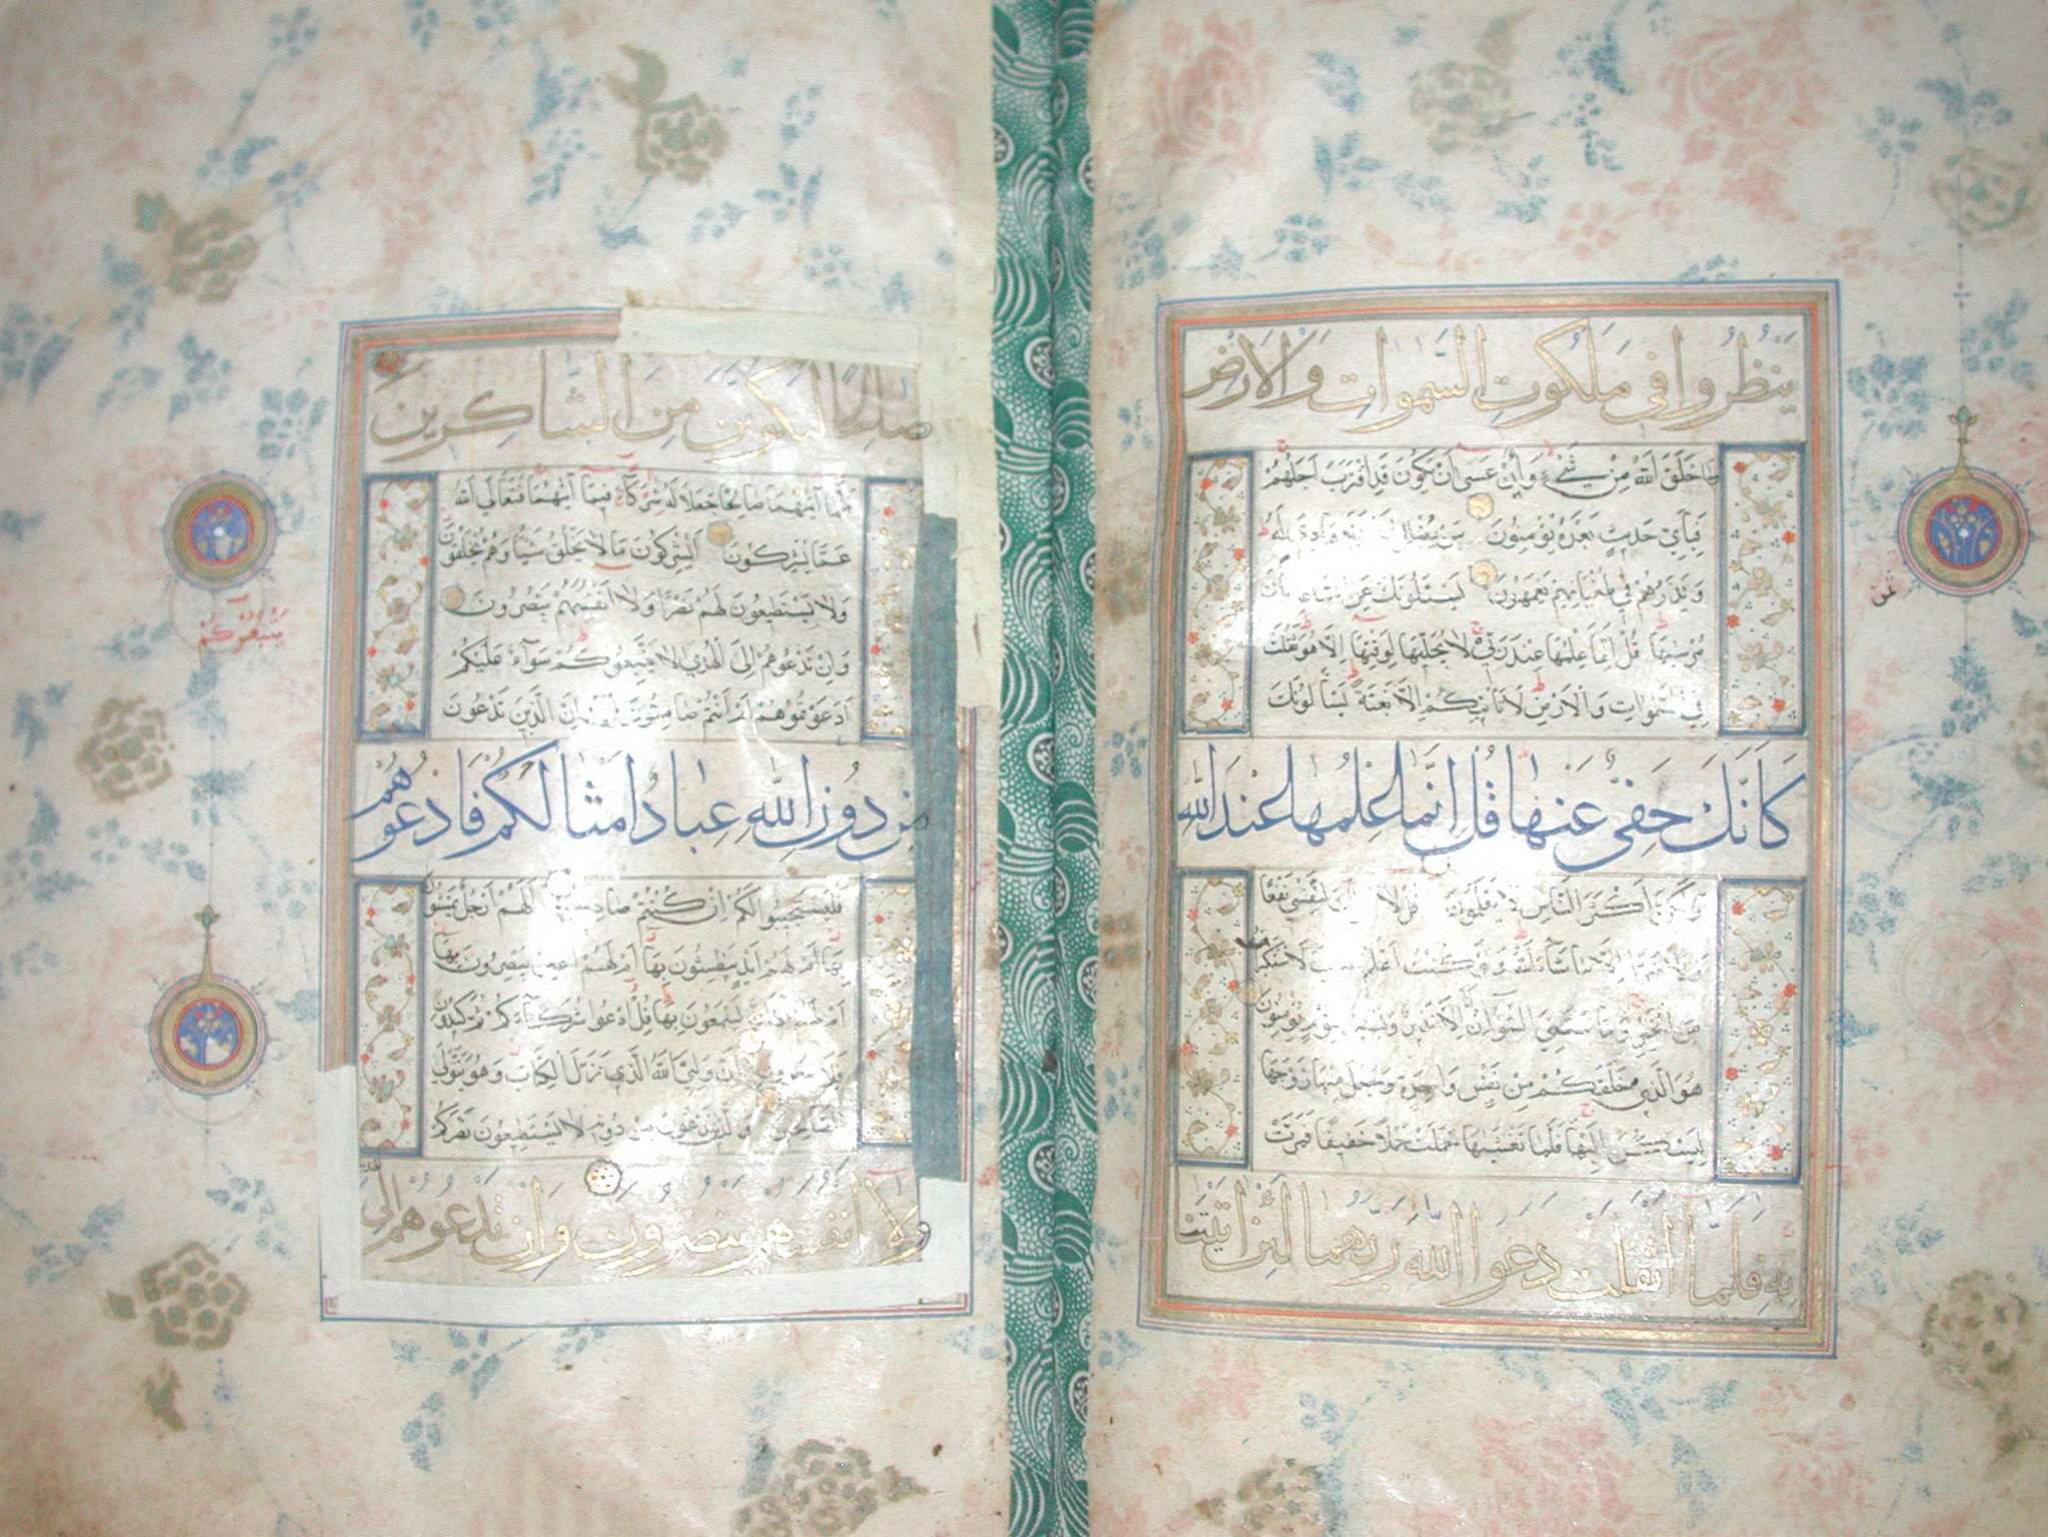 ينظروا في ملكوت السموات والارض
وما خلق الله من شيء وأن عسى ان يكون قد اقترب اجلهم
فبأي حديث بعده يؤمنون من يضلل الله فلا هادي له
ويذرهم في طغيانهم يعمهون يسئلونك عن الساعة أيان
مرسيها قل إنما علمها عند ربي لا يجليها لوقتها إلا هو ثقلت
في السموات والارض لا تأتيكم الا بغتة يسألونك
كأنك حفي عنها قل إنما علمها عند الله
ولكن أكثر الناس لا يعلمون قل لا لنفسي نفعا
ولا ضرا إلا ما شاء الله ولو كنت أعلم الغيب لاستكثرت
من الخير وما مسني السوء إن انا الا نذير وبشير لقوم يؤمنون
هو الذي خلقكم من نفس واحدة وجعل منها زوجها
ليسكن اليها فلما تغشيها حملت حملا خفيفا فمرت
به فلما اثقلت دعوا الله ربهما لئن اتيتنا
ثمن
صالحا لنكونن من الشاكرين
فلما آتيهما صالحا جعلا له شركاء فيما آتيهما فتعالى الله
عما يشركون أيشركون ما لا يخلق شيئا وهم يخلقون
ولا يستطيعون لهم نصرا ولا انفسهم ينصرون
وان تدعوهم إلى الهدى لا يتبعوكم سواء عليكم
ادعوتموهم أم أنتم صامتون إن الذين تدعون
من دون الله عباد امثالكم فادعوهم
فليستجيبوا لكم ان كنتم صادقين ألهم أرجل يمشون
بها أم لهم أيد يبطشون بها أم لهم أعين يبصرون بها
أم لهم آذان يسمعون بها قل ادعوا شركاءكم ثم كيدون
فلا تنظرون إن وليي الله الذي نزل الكتاب وهو يتولى
الصالحين والذين تدعون من دونه لا يستطيعون نصركم
ولا أنفسهم ينصرون وإن تدعوهم الى
الهدى